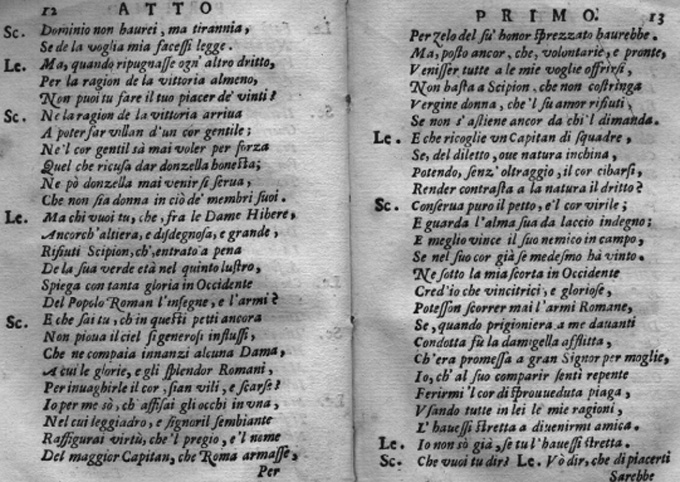 12 ATTO
Sc. Dominio non haurei, ma tirannia,
Se de la voglia mia facessi legge.
Le. Ma, quando ripugnasse ogn' altro dritto,
Per la ragion de la vittoria almeno,
Non puoi tu fare il tuo piacer de' vinti?
Sc. Ne la ragion de la vittoria arriua
A poter far villan d'un cor gentile;
Ne'l cor gentil sà mai voler per forza
Quel che ricusa dar donzella honesta;
Ne pò donzella mai venir sì serua,
Che non sia donna in ciò de' membri suoi.
Le. Ma chi vuoi tu, che, fra le Dame Hibere,
Ancorch'altiera, e disdegnosa, e grande,
Rifiuti Scipion, ch', entrato a pena
De la sua verde età nel quinto lustro,
Spiega con tanta gloria in Occidente
Del Popolo Roman l'insegne, e l'armi?
Sc. E che sai tu, ch'in questi petti ancora
Non pioua il ciel sì generosi influssi,
Che ne compaia innanzi alcuna Dama,
A cui le glorie, e gli splendor Romani,
Per inuaghirle il cor, sian vili, e scarse?
Io per me sò, ch'affisai gli occhi in vna,
Nel cui leggiadro, e signoril sembiante
Raffigurai virtù, che'l pregio, e'l nome
Del maggior Capitan, che Roma armasse,
Per
PRIMO. 13
Per zelo del su' honor sprezzato haurebbe.
Ma, posto ancor, che, volontarie, e pronte,
Venisser tutte a le mie voglie offrirsi,
Non basta a Scipion, che non costringa
Vergine donna, che'l su amor rifiuti,
Se non s'astiene ancor da chi'l dimanda.
Le. E che ricoglie vn Capitan di squadre,
Se, del diletto, oue natura inchina,
Potendo, senz' oltraggio, il cor cibarsi,
Render contrasta a la natura il dritto?
Sc. Conserua puro il petto, e'l cor virile;
E guarda l'alma sua da laccio indegno;
E meglio vince il suo nemico in campo,
Se nel suo cor già se medesmo hà vinto.
Ne sotto la mia scorta in Occidente
Cred'io che vincitrici, e gloriose,
Potesson scorrer mai l'armi Romane,
Se, quando prigioniera a me dauanti
Condotta fù la damigella afflitta,
Ch'era promessa a gran Signor per moglie,
Io, ch'al suo comparir senti repente
Ferirmi'l cor di sprouueduta piaga,
Vsando tutte in lei le mie ragioni,
L'hauessi stretta a diuenirmi amica.
Le. Io non sò già, se tu l'hauessi stretta.
Sc. Che vuoi tu dir? Le. Vò dir, che di piacerti
Sarebbe